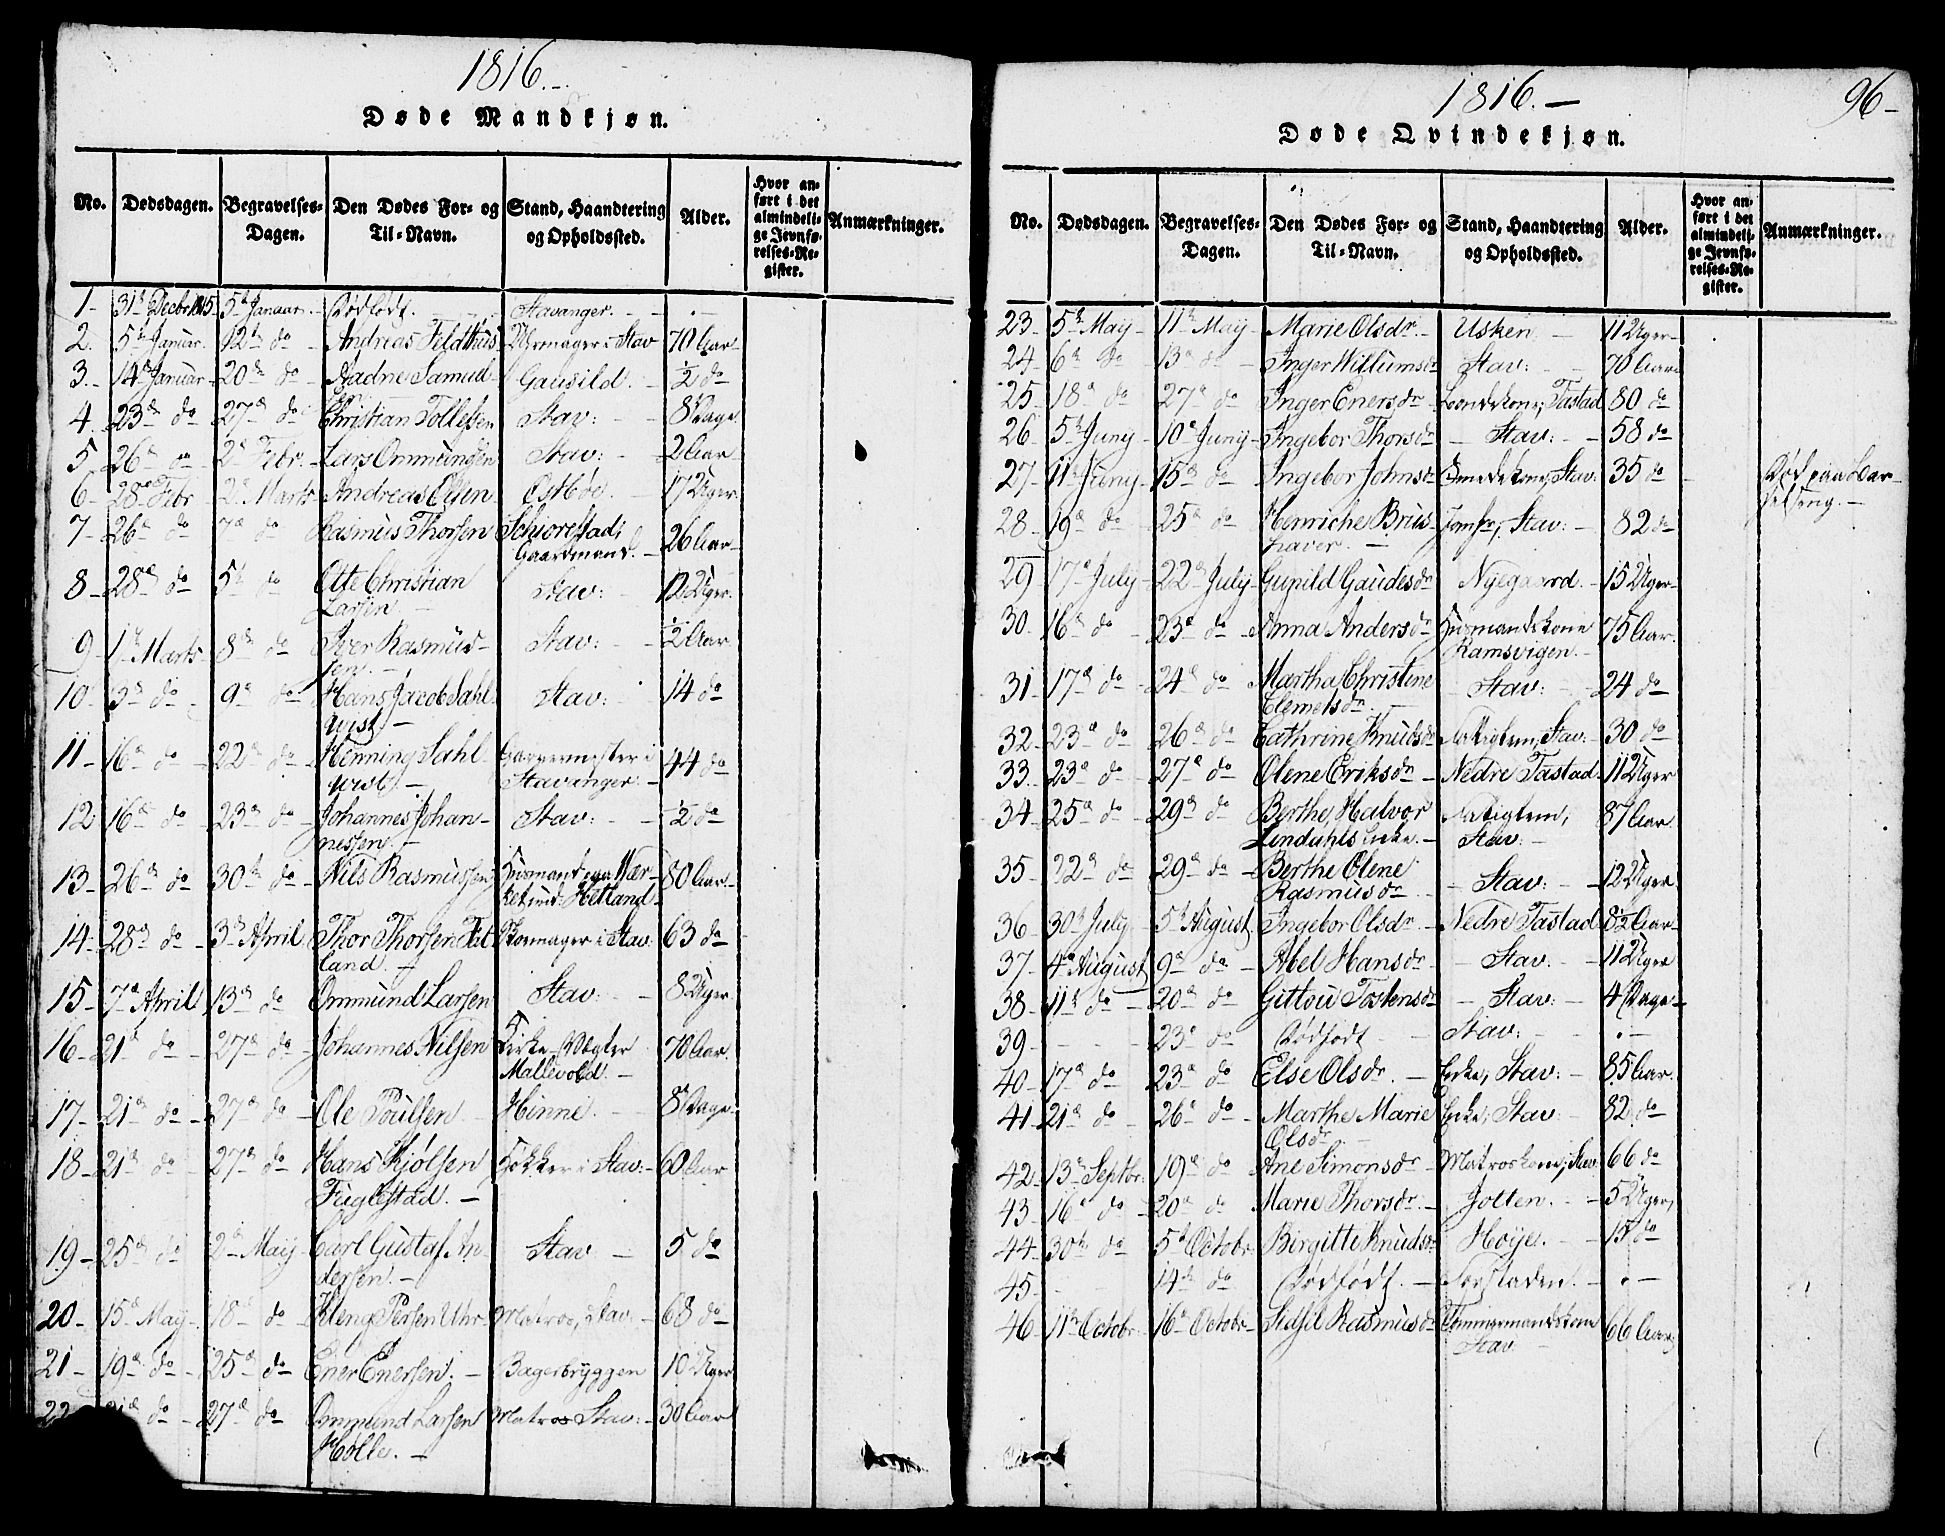 1816.-
Døde Mandkjøn.
No. Dødsdagen. Begravelses-Dagen. Den Dødes For- og Til-Navn. Stand, Haandtering og Opholdssted. Alder. Hvor anført i det almindelige Jevnførelses-Register. Anmærkninger.
1- 31te Decbr 1815- 5te Januar- Dødfødt. Stavanger. -
2. 5te Januar. 12te do - Andreas Feldthus i Stav 70 Aar-
3.- 14de Januar- 20de do - Aadne Samuel- Gausild. - ½ do
4. 23de do 27de do Christian Tollefsen Stav: - 8 Dage
5 26de do 2de Febr.- Lars Ommundsen Stav: - 2 Aar
6- 28de Febr - 2de Marts Andreas Olsen Østbøe. 17 Uger
7- 26de do 7de do Rasmus Thorsen Schiorestad;
Gaardmand. - 26 Aar-
8- 28de do 5te do Otte Christian
Larsen - Stav: - 12 Uger.
9- 1te Marts- 8de do Iver Rasmus-
sen. - Stav: - ½ Aar
10- 3de do 9de do Hans Jacob Sahl-
qvist - Stav: 14 do
11- 16de do 22de do Henning Sahl-
qvist - Garvermester i
Stavanger - 44 do
12 16de do - 23de do Johannes Johan-
nessen. - Stav: - ½ do
13- 26de do 30te do - Nils Rasmussen Huusmand paa
Hetland 80 Aar-
14- 28de do - 3de April Thor Thorsen
land. - Skomager i Stav: 63 do
15- 7de April 13de do Ommund Larsen Stav: - 8 Uger
16- 21de do 27de do - Johannes Nilsen Kirke-Vægter
Mallevold. - 70 Aar.
17- 21de do - 27de do - Ole Poulsen Hinne. 8 Dage.
18- 21de do 27de do Hans Kjølsen
Fuglestad. - Høkker i Stav:- 60 Aar
19- 25de do 2de Maij Carl Gustaf An-
dersen. - Stav - 5 do
20- 15de Maij - 18de do Kleng Persen Uhr- Matros, Stav: - 68 do
21- 19de do - 25de do Ener Enersen. - Bagerbryggen 10 Uger
22 do - 27de do Ommund Larsen
Hølle. - Matros Stav: - 30 Aar
1816.- 96-
Døde Qvindekjøn.
No. Dødsdagen. Begravelses-Dagen. Den Dødes For- og Til-Navn. Stand, Haandtering og Opholdssted. Alder. Hvor anført i det almindelige Jevnførelses-Register. Anmærkninger.
23- 5te Maij- 11te Maij- Marie Olsdr - Usken - 11 Uger-
24- 6te do 13de do - Inger Willumsdr Stav: - 70 Aar
25- 18de do 27de do Inger Enersdr - Tastad 80 do
26- 5te Junij- 10de Junij- Ingebor Thorsdr - Stav: - 58 do
27- 11te Junij- 15de do Ingebor Johnsdr Smedekone, Stav: 35 do Død paa Bar-
selseng. -
28- 19de do 25de do Henriche Brus-
haver. - Jomfr, Stav: - 82 do
29- 17de Julij- 22de Julij- Gunild Gaudesdr Nyegaard. - 15 Uger-
30- 16de do - 23de do - Anna Andersdr Huusmandskone
Ramsvigen. - 75 Aar.
31- 17de do - 24de do Martha Christine
Clemetsdr - Stav: - 24 do
32- 23de do 26de do Cathrine Knudsdr Stav: - 30 do
33- 23de do - 27de do Olene Eriksdr - Nedre Tastad- 11 Uger
34- 25de do - 29de do Berthe, Halvor
Lindahls Enke. - Stav: - 87 Aar
35 22de do 29de do - Berthe Olene
Rasmusdr - Stav: - 12 Uger
36- 30te Julij- 5te August Ingebor Olsdr - Nedre Tastad 8½ Aar-
37- 4de August 9de do - Abel Hansdr - Stav: - 11 Uger
38- 11te do - 20de do - Tostensdr - Stav: - 4 Dage-
39- - - - 23de do Dødfødt - Stav: -
40- 17de do 23de do Else Olsdr - Enke, Stav: - 85 Aar.
41- 21de do - 26de do - Marthe Marie
Olsdr - Enke, Stav: - 82 do
42- 13de Septbr: 19de do Ane Simonsdr - Matroskone, Stav: 66 do
43- 16de do - 20de do Marie Thorsdr - Jotten. - 5 Uger,
44- 30te do 5te Octobr- Birgitte Knudsdr Høije. - 15 do
45- 14de do Dødfødt. - -
46- 11te Octobr- 16de Octobr- Sidsil Rasmusdr Timmermandskone
Stav - 66 Aar